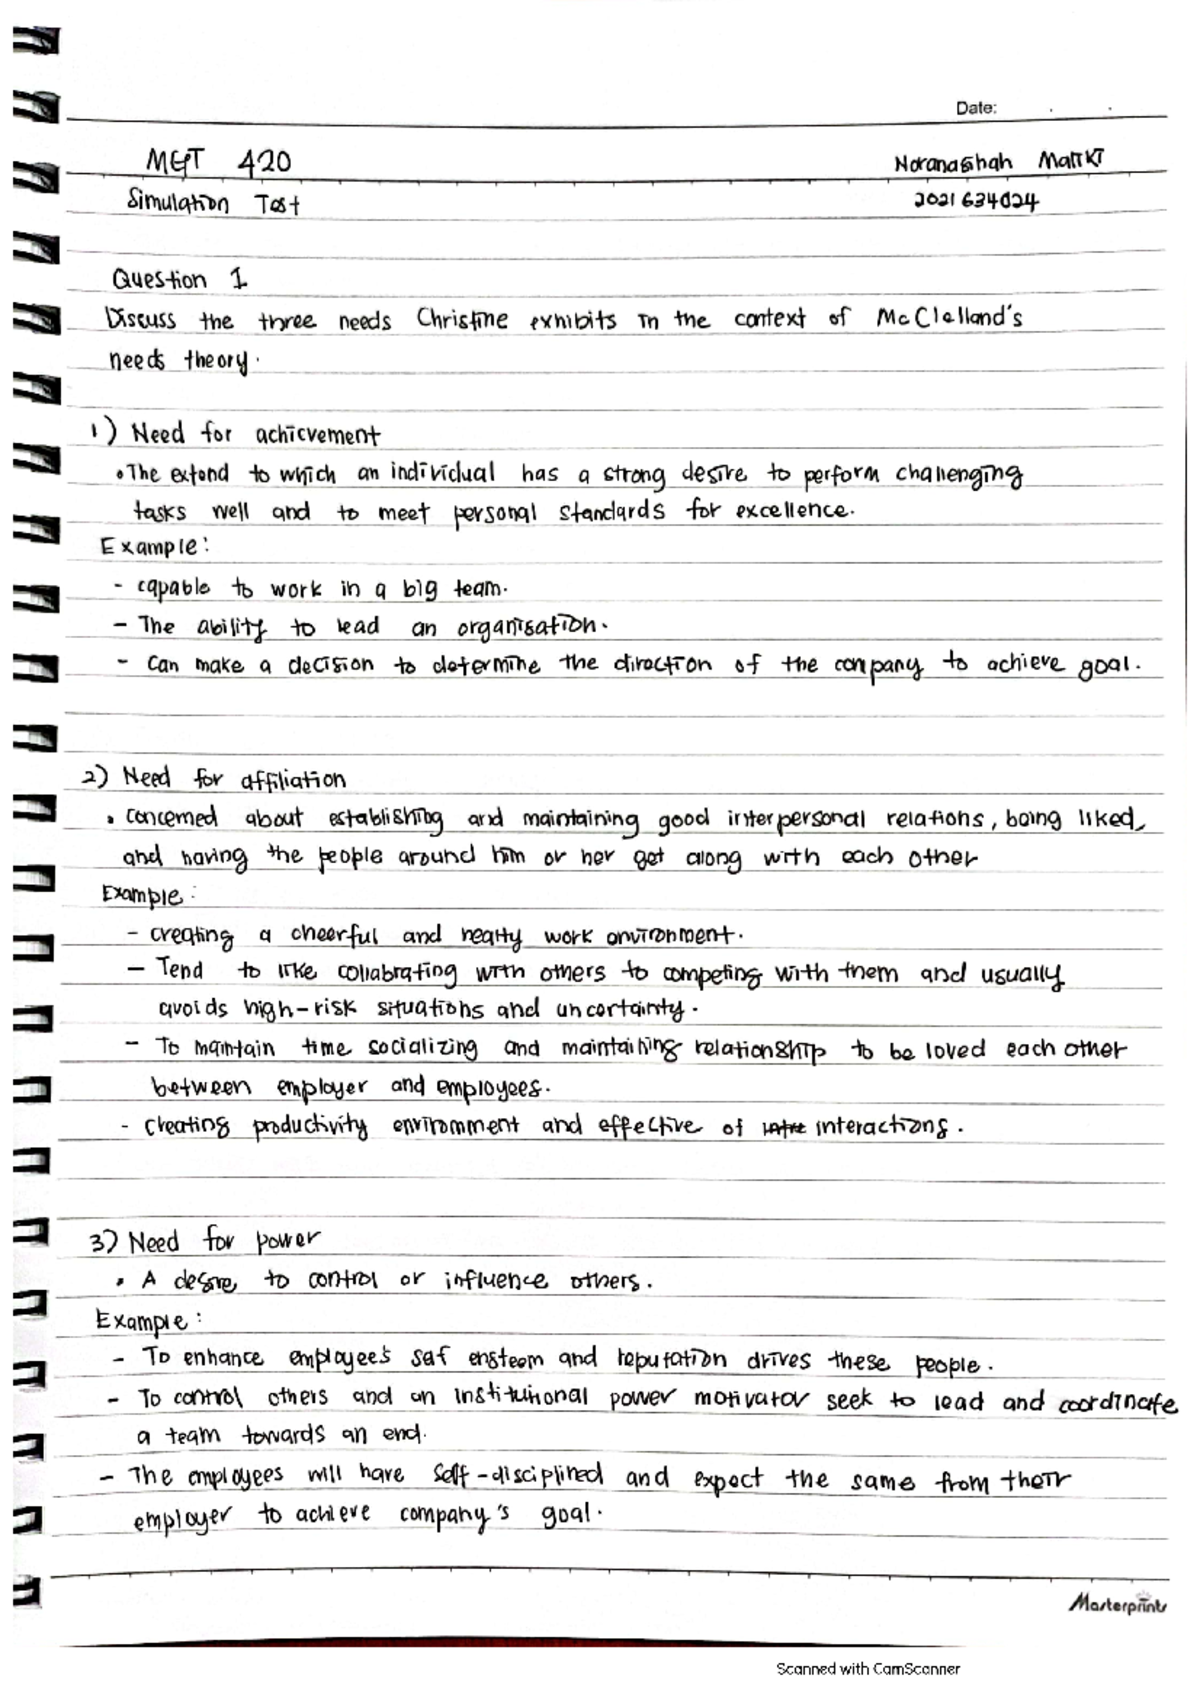 Date:
MGT 420
Noranasihah Maliki
Simulation Test
2021634024
Question 1
Discuss the three needs Christine exhibits in the context of McClelland's
needs theory.
1) Need for achievement
• The extend to which an individual has a strong desire to perform challenging
tasks well and to meet personal standards for excellence.
Example:
- capable to work in a big team.
- The ability to lead an organisation.
- Can make a decision to determine the direction of the company to achieve goal.
2) Need for affiliation
• concerned about establishing and maintaining good interpersonal relations, being liked,
and having the people around him or her get along with each other
Example:
- creating a cheerful and healty work environment.
- Tend to like collabrating with others to competing with them and usually
avoids high-risk situations and uncertainty.
- To maintain time socializing and maintaining relationship to be loved each other
between employer and employees.
- creating productivity environment and effective of interactions.
3) Need for power
• A desire to control or influence others.
Example:
- To enhance employee's self ensteem and reputation drives these people.
- To control others and an institutional power motivator seek to lead and coordinate
a team towards an end.
- The employees will have self-disciplined and expect the same from their
employer to achieve company's goal.
Masterprint
Scanned with CamScanner